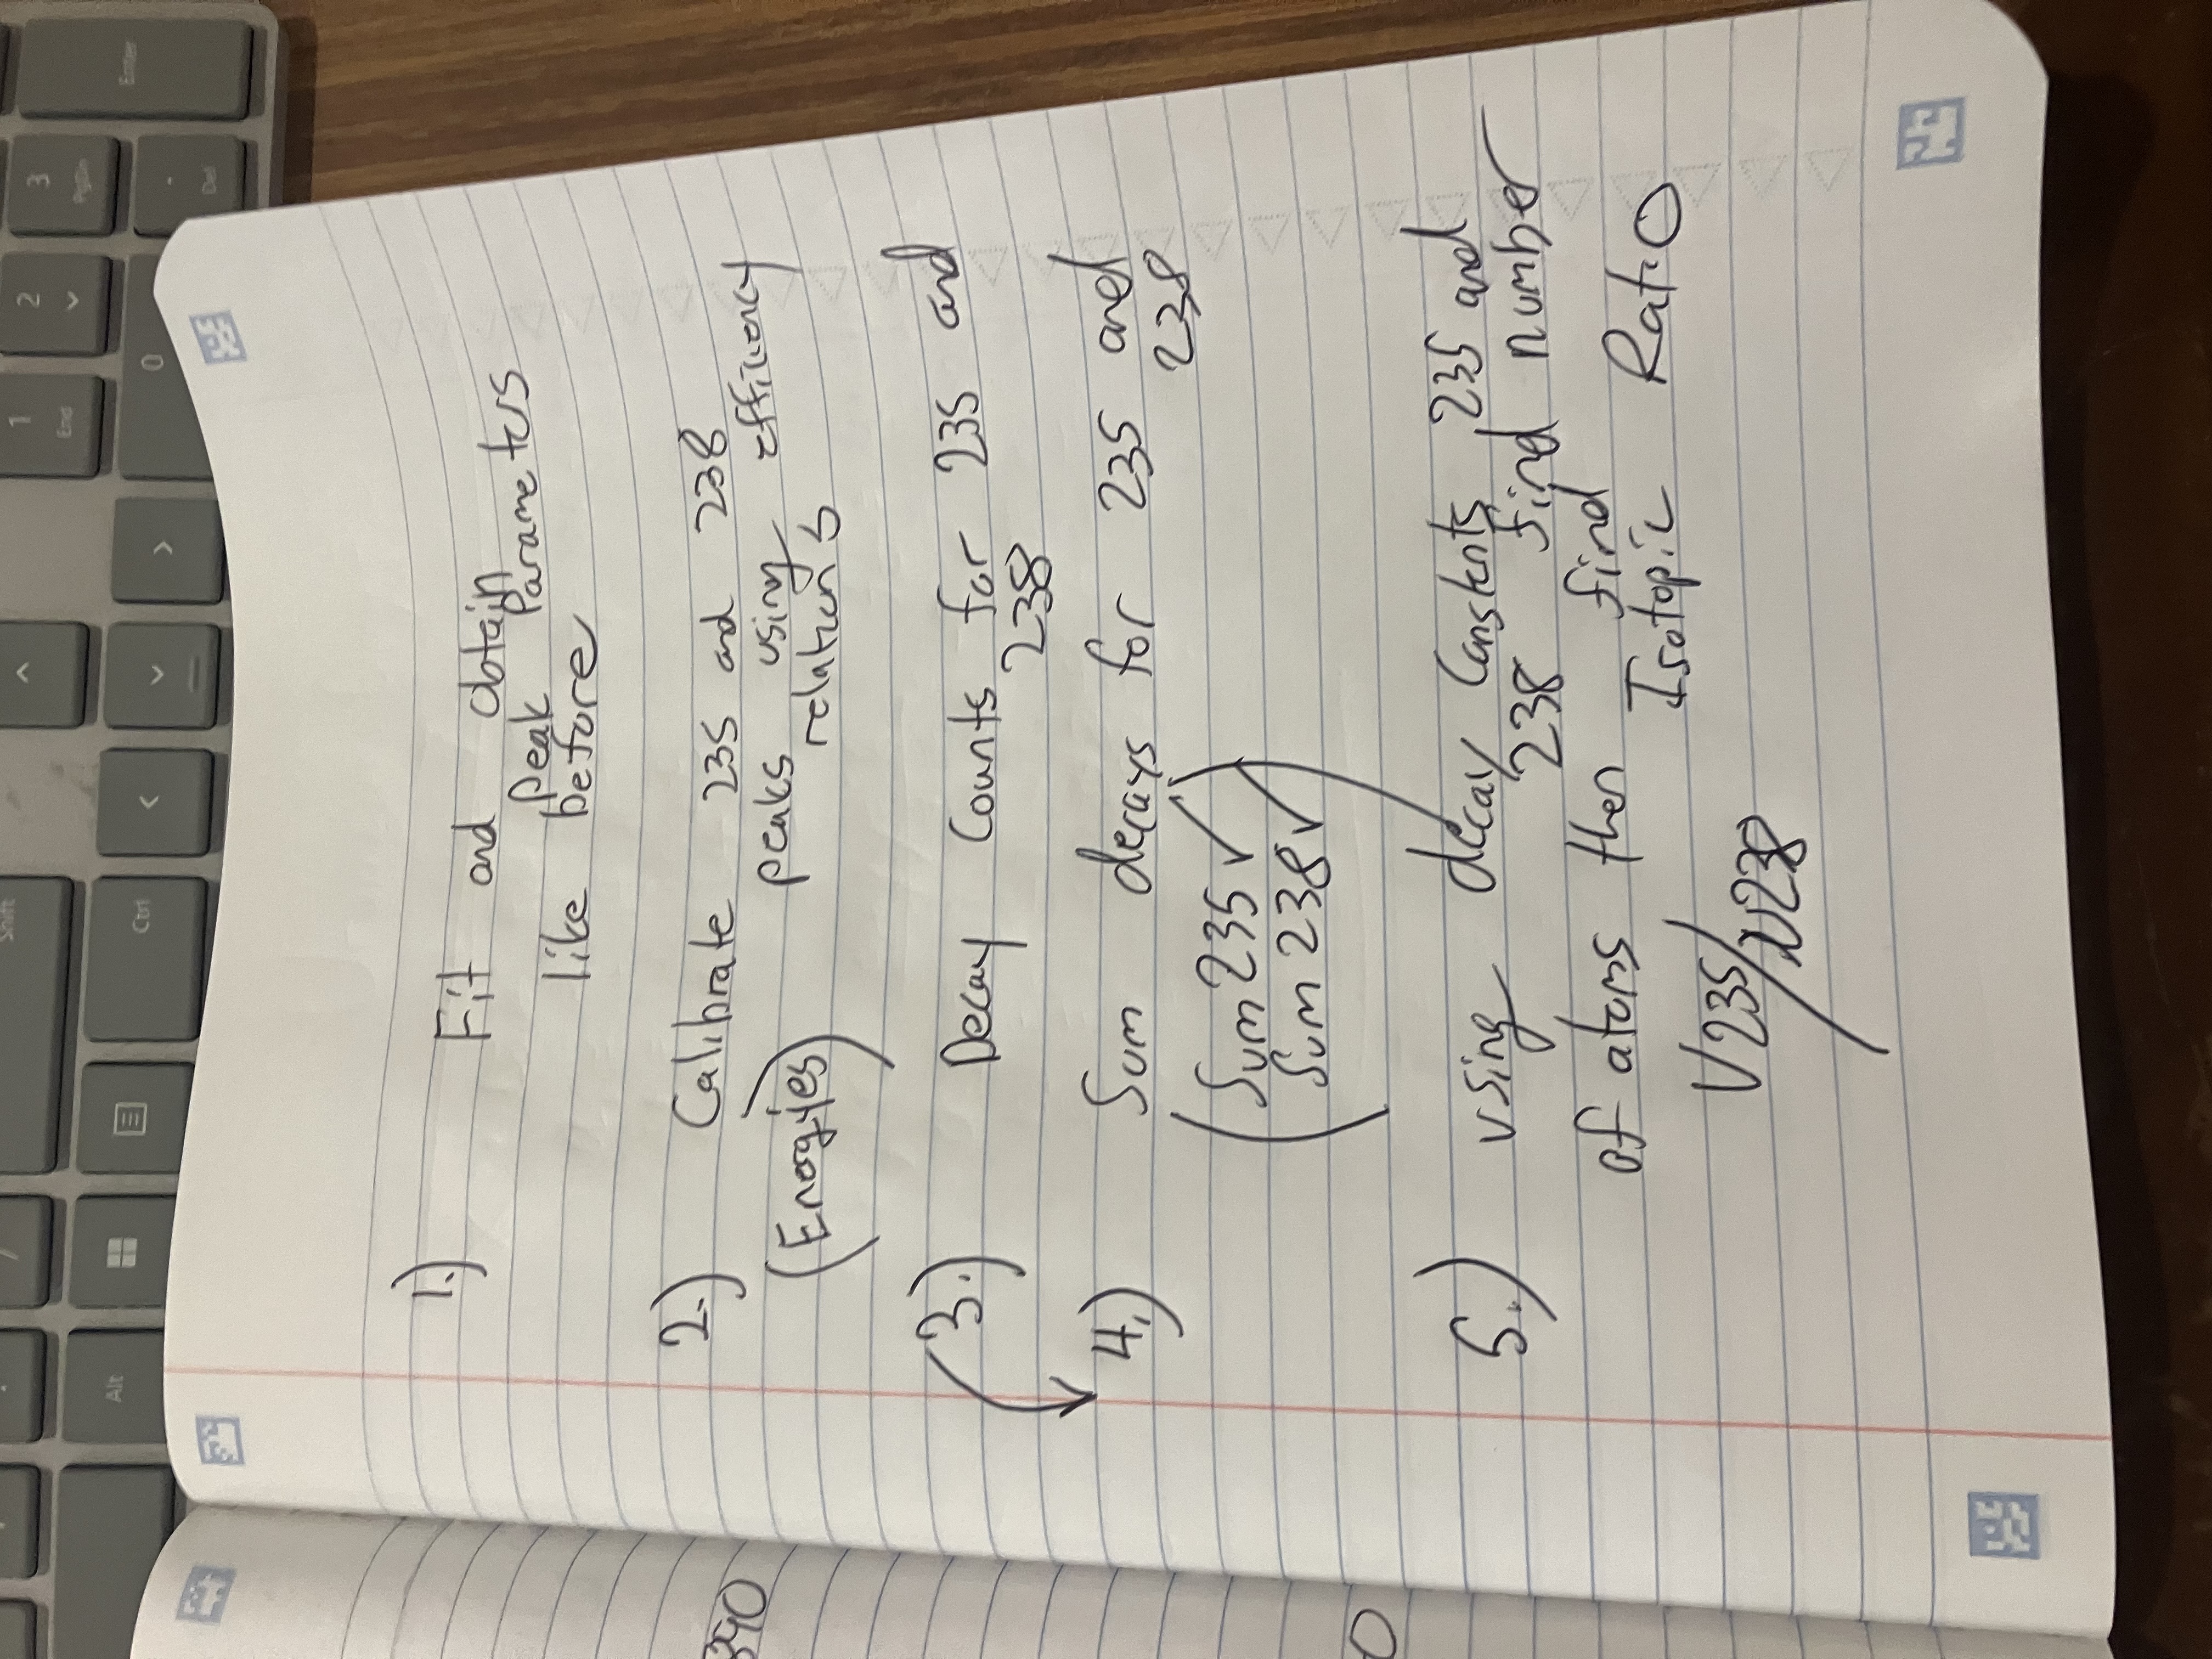 Shift
Alt
Ctrl
1
End
2
3
PgDn
0
Enter
Del
390
0
1.) Fit and obtain
Peak Parameters
like before
2.) Calibrate 235 and 238
(Energies) peaks using efficiency
relations
3.) Decay Counts for 235 and
238
4.) Sum decays for 235 and
238
(Sum 235 ✓
Sum 238 ✓)
5.) using decay Constants 235 and
238 find number
of atoms then find
Isotopic Ratio
U235/U238